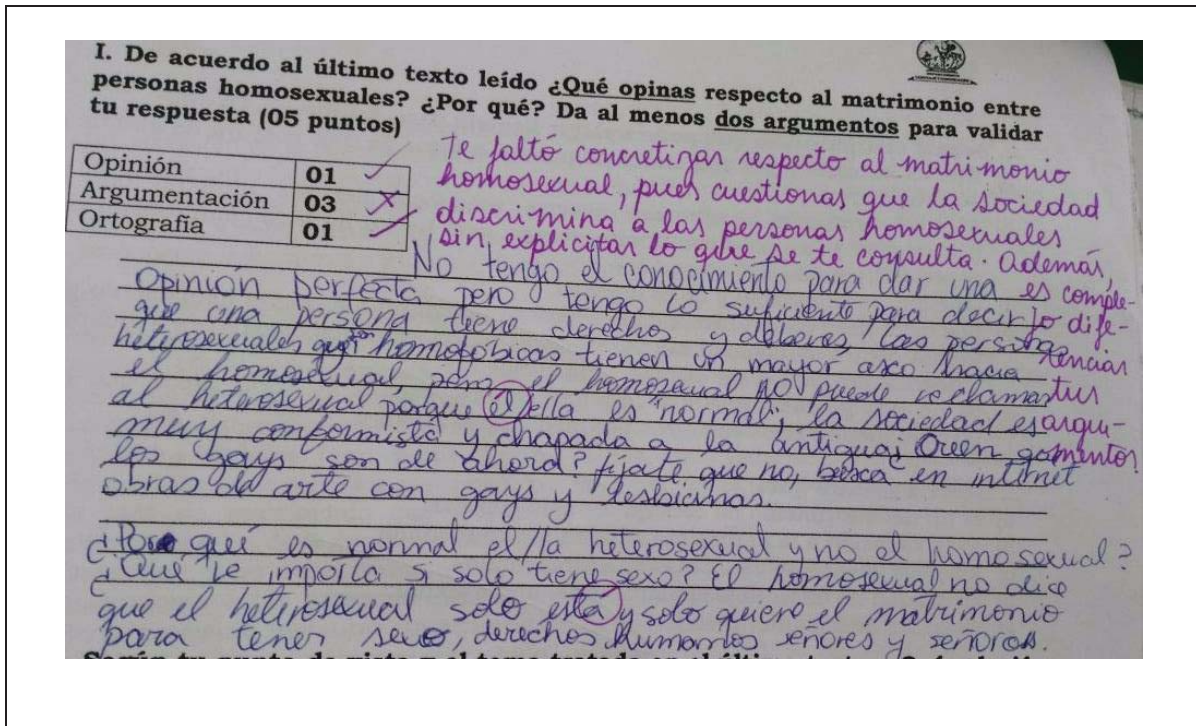 I. De acuerdo al último texto leído ¿Qué opinas respecto al matrimonio entre
personas homosexuales? ¿Por qué? Da al menos dos argumentos para validar
tu respuesta (05 puntos)
Opinión 01
Argumentación 03
Ortografía 01
Te faltó concretizar respecto al matrimonio
homosexual, pues cuestionas que la sociedad
discrimina a las personas homosexuales
sin explicitar lo que se te consulta. Además,
es comple-
jo dife-
renciar
tus
argu-
mentos
No tengo el conocimiento para dar una
Opinión perfecta pero tengo lo suficiente para decir
que una persona tiene derechos y deberes, las personas
heterosexuales que son homofobicas tienen un mayor asco hacia
el homosexual, pero el homosexual no puede reclamar
al heterosexual porque el/ella es "normal"; la sociedad es
muy conformista y chapada a la antigua; Creen q
los gays son de ahora? fíjate que no, busca en internet
obras de arte con gays y lesbianas.
¿Por qué es normal el/la heterosexual y no el homosexual?
¿Qué le importa si solo tiene sexo? El homosexual no dice
que el heterosexual solo esta y solo quiere el matrimonio
para tener sexo, derechos humanos señores y señoras.